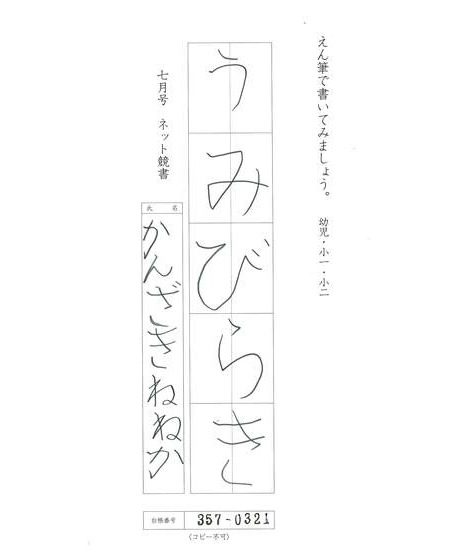 えん筆で書いてみましょう。 幼児・小一・小二
うみびらき
七月号 ネット競書
氏名
かんざきねねか
台帳番号 357-0321
(コピー不可)